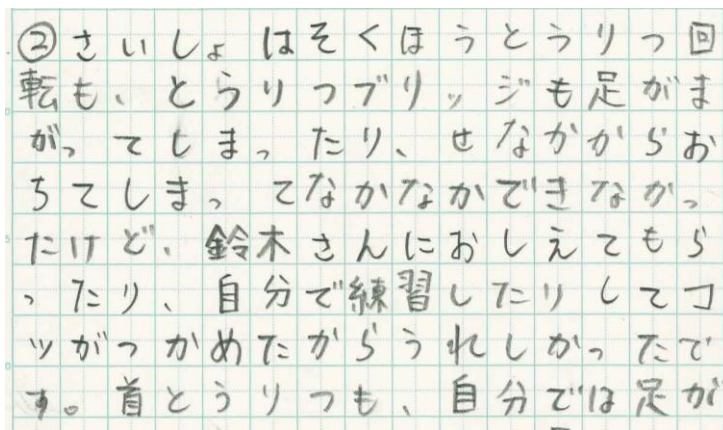 ②さいしょはそくほうとうりつ回
転も、とうりつブリッジも足がま
がってしまったり、せなかからお
ちてしまってなかなかできなかっ
たけど、鈴木さんにおしえてもら
ったり、自分で練習したりしてコ
ツがつかめたからうれしかったで
す。首とうりつも、自分では足が